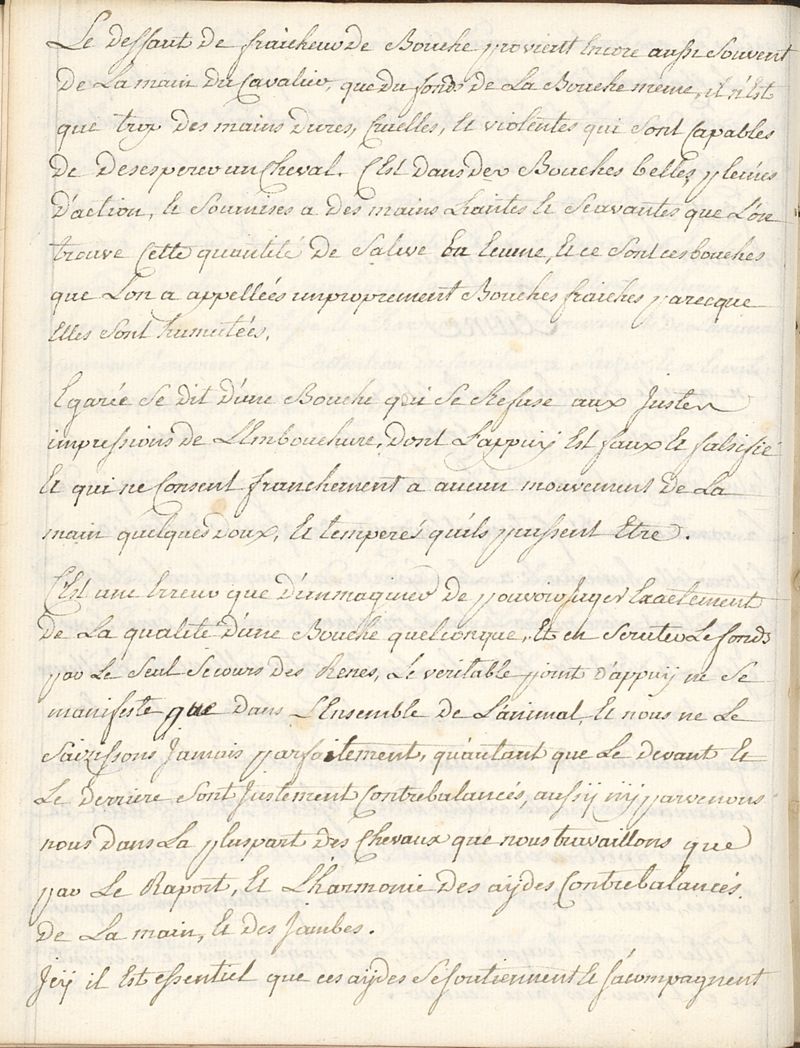 Le deffaut de fraicheur de Bouche provient Encore aussi Souvent
De La main du Cavalier, que du fonds de La Bouche meme, il n'Est
que trop des mains dures, Cruelles, et violentes qui sont Capables
de desesperer un Cheval. C'Est dans des Bouches belles, pleines
D'action, et Soumises a des mains Liantes et Scavantes que L'on
trouve Cette quantité de Salive En Ecume, et ce sont ces bouches
que L'on a appellées improprement Bouches fraiches parceque
Elles sont humectées.
Egarée se dit d'une Bouche qui se Refuse aux Justes
impressions de L'Embouchure, dont L'appuy Est faux et falsifié
et qui ne Consent franchement a aucun mouvement de La
main quelques doux, et temperés qu'ils puissent Etre.
C'Est une Erreur que d'immaginer de pouvoir Juger Exactement
de La qualité d'une Bouche quelconque, et en Scruter Le fonds
par Le Seul Secours des Renes, Le veritable point d'appuy ne Se
manifeste que dans L'Ensemble de L'animal, et nous ne Le
Saizissons Jamais parfaitement, qu'autant que Le devant et
Le derriere sont Justement Contrebalancés, aussy n'y parvenons
nous dans La pluspart des Chevaux que nous travaillons que
par Le Raport, et L'harmonie des aydes Contrebalancés
de La main, et des Jambes.
Jcy il Est essentiel que ces aydes Se soutiennent et s'acompagnent